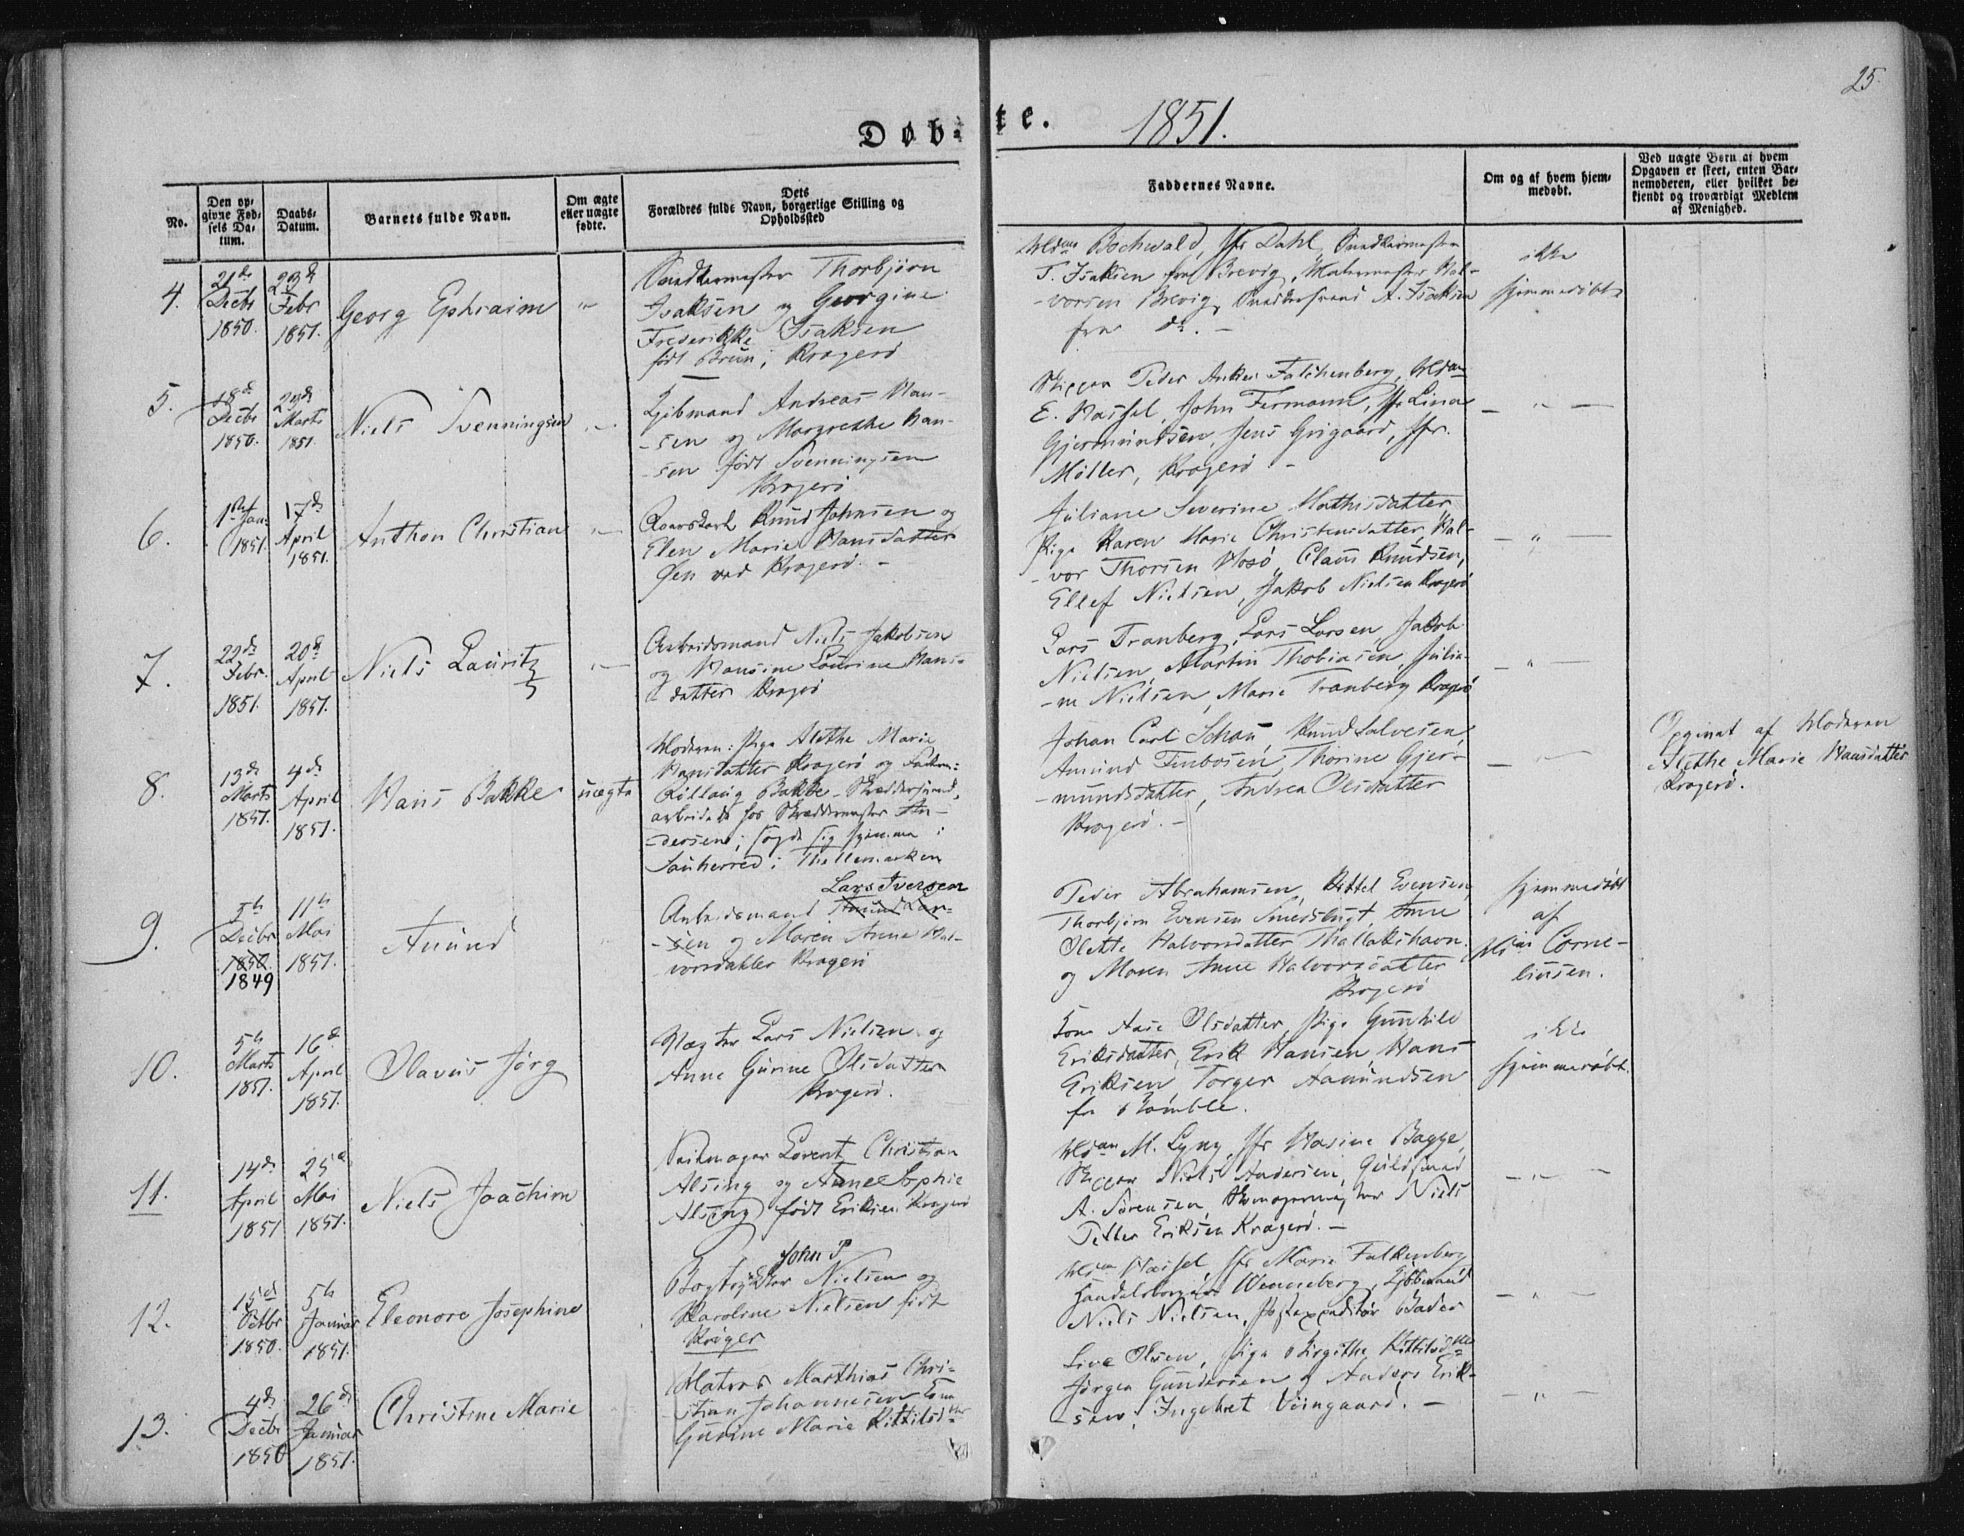 25.
Døb-
te.
1851.
No.
Den op-
givne Fød-
sels Da-
tum.
Daabs-
Datum.
Barnets fulde Navn.
Om ægte
eller uægte
fødte.
Dets
Forældres fulde Navn, borgerlige Stilling og
Opholdssted
Faddernes Navne.
Om og af hvem hjem-
medøbt.
Ved uægte Børn af hvem
Opgaven er skeet, enten Bar-
nemoderen, eller hvilket be-
kjendt og troværdigt Medlem
af Menighed.
4.
21de
Decbr
1850.
23d
Febr
1851.
Georg Ephraim
"
Snedkermester Thorbjørn
Isaksen og Georgine
Frederikke Isaksen
født Brun; Kragerø
Mdm Bochwald, Jfr Dahl, Snedkermester
T. Isaksen fra Brevig, Malermester Hal-
-vorsen Brevig, Snedkersvend A. Isaksen
fra do. -
ikke
hjemmedøbt
5.
18de
Decbr
1850.
23de
Marts
1851.
Niels Svenningsen
"
Kjøbmand Andreas Han-
-sen og Margrethe Han-
-sen født Svenningsen
Kragerø
Skipper Peder Anker Falchenberg, Mdm
E. Hassel, John Fermann, Jfr Lina
Gjermundsen, Jens Grigaard, Jfr.
Møller, Kragerø -
- " -
6.
1ste Jan.
1851.
17de
April
1851.
Anthon Christian
"
Knud Johnsen og
Elen Marie Hansdatter
Øen ved Kragerø. -
Juliane Severine Mathisdatter,
Pige Karen Marie Christensdatter, Hal-
-vor Thorsen Claus Knudsen,
Ellef Nielsen, Jakob Nielsen Kragerø
- " -
7.
22de
Febr.
1851.
20de
April
1851.
Niels Lauritz
"
Arbeidsmand Niels Jakobsen
og Hansine Laurine Hans-
datter Kragerø
Lars Tranberg, Lars Larsen, Jakob
Nielsen, Martin Thobiasen, Julia-
-ne Nielsen, Marie Tranberg Kragerø
- " -
8.
13de
Marts
1851.
4de
April
1851.
Hans Bakke
uægte
Moderen: Pige Alethe Marie
Hansdatter Kragerø og Faderen:
Rollaug Bakke - Skræddersvend,
arbeidede hos Skræddermester An-
-dersen; sagde sig hjemme i
Sauherred i Thellemarken
Johan Carl Schau, Knud Salvesen,
Amund Finbosen, Thorine Gjer-
-mundsdatter, Andrea Olsdatter
Kragerø. -
- " -
Opgivet af Moderen
Alethe Marie Hansdatter
Kragerø.
9.
5te
Decbr
1850.
1849
11te
Mai
1851.
Amund
Lars Iversen
Arbeidsmand Amund Lar-
-sen og Maren Anne Hal-
vorsdatter Kragerø
Peder Abrahamsen, Kittel Evensen,
Thorbjørn Evensen Smedsbugt, Anne
Olette Halvorsdatter Thallakshavn
og Maren Anne Halvorsdatter
Kragerø
hjemmedøbt
af
Corne-
liusen.
10.
5te
Marts
1851.
16de
April
1851.
Olavus Jørg
Vægter Lars Nielsen og
Anne Gurine Olsdatter
Kragerø.
Kone Anne Olsdatter, Pige Gunhild
Eriksdatter, Erik Hansen, Hans
Eriksen, Torger Aamundsen
fr Bamble.
ikke
hjemmedøbt.
11.
14de
April
1851
25de
Mai
1851.
Niels Joachim
Seilmager Lorentz Christian
Alsing og Anne Sophie
Alsing født Eriksen Kragerø
Mdm M. Lyng, Jfr Hasine Bagge,
Skipper Niels Andersen, Guldsmed
A. Sørensen, Skomagermester Niels
Petter Eriksen Kragerø. -
- " -
12.
15de
Octbr
1850.
5te
Januar
1851.
Eleonore Josephine
John P
Bogtrykker Nielsen og
Karoline Nielsen født
Krøger
Mdm Hassel, Jfr Marie Falkenberg
Handelsborger Wenneberg, Kjøbmand
Niels Nielsen, Postexpeditør Bader
- " -
13.
4de
Decbr
1850
26de
Januar
1851.
Christine Marie
Matros Matthias Chri-
-stian Johannesen Kone
Gurine Marie Kittilsdtr
Live Olsen, Pige Birgithe Kittilsdtr
Jørgen Gundersen og Anders Erik-
-sen, Ingebret Viingaard. -
- " -